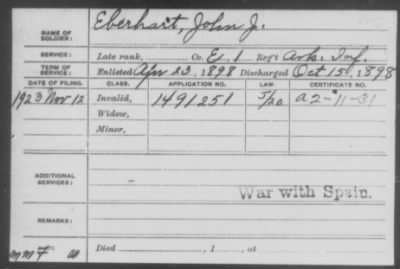 NAME OF SOLDIER: Eberhart, John J.
SERVICE: Late rank, Co. E, 1 Reg't Ark. Inf.
TERM OF SERVICE: Enlisted Apr 23, 1898 Discharged Oct 15, 1898
DATE OF FILING. CLASS. APPLICATION NO. LAW. CERTIFICATE NO.
1923 Nov 12 Invalid, 1491251 5/20 a 2-11-31
Widow,
Minor,
ADDITIONAL SERVICES:
War with Spain.
REMARKS:
Died , 1 , at